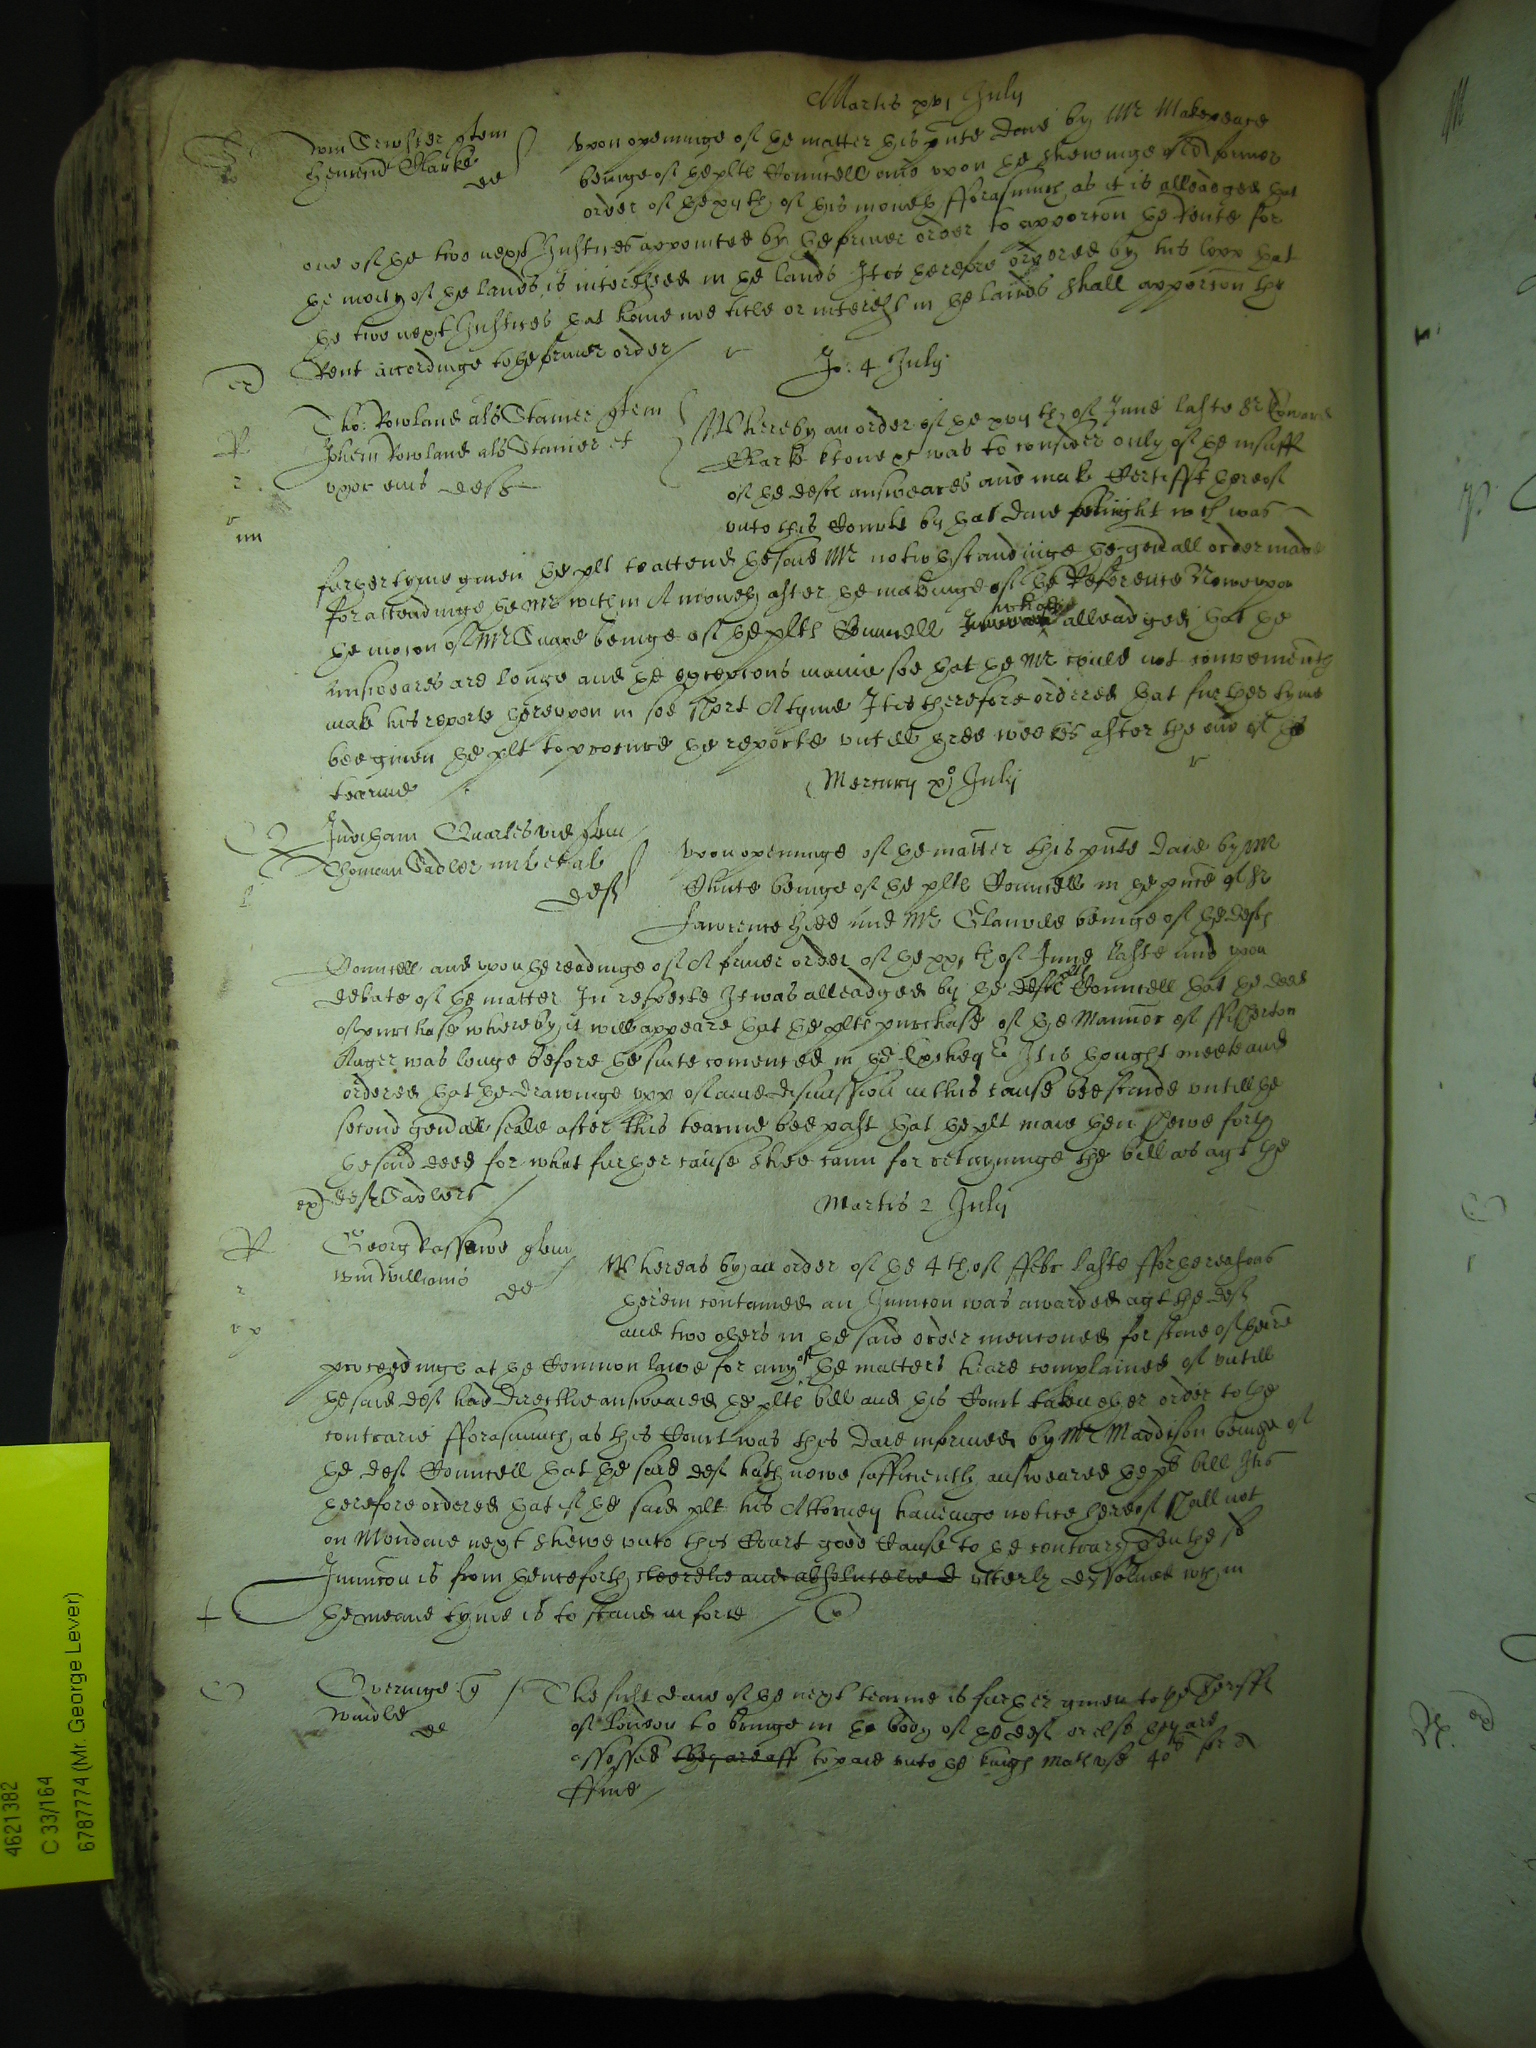 Martis xvj July
Upon openinge of the matter this pnte daie by Mr Makepeace
beinge of the plts Councell and upon the shewinge of a former
order of the xijth of this moneth fforasmuch as it is alleadged that
one of the two next Justices appointed by the former order to apporcon the Rente for
the moity of the lands is interessed in the lands It is therefore ordered by this Lopp that
the two next Justices that have noe title or interest in the lands shall apporcon the
Rent accordinge to the former order
Jo: 4 July
Tho: Rowland als Stanier quem
Johem Rowland als Stanier et
uxor eius deft
Whereby an order of the xvijth of June laste Sr Edward
Clarke knowne was to consider only of the insuff
of the defts answeares and make Certifft thereof
unto this Courte by that daie fortnight wch was
further tyme given the plt to attend the said Mr notwthstandinge the genall order made
for attendinge the Mr within A moneth after the makinge of the Reference Nowe upon
the mocon of Mr beinge of the plts Councell who alleadged that the
answeares are longe and the excepcons manie soe that the Mr could not convenently
make his reporte thereupon in soe short A tyme It is therefore ordered that further tyme
bee given the plt to procure the reporte untill three weekes after the end of the
tearme
Mercury xo July
Quarles vid quer
Thoman Sadler mil et al
deft
Upon openinge of the matter this pnte daie by Mr
Chute beinge of the plts Councell in the pnce of Sr
Lawrence Hide and Mr Glanvile beinge of the defts
Councell and upon the readinge of A former order of the xxjth of June laste and upon
debate of the matter In respecte It was alleadged by the defts plts Councell that the deed
of purchase whereby it will appeare that the plts purchase of the Mannor of ffilherton
Anger was longe before the suite comenced in the Excheqr It is thought meete and
ordered that the drawinge upp of anie dismission in this cause bee staide untill the
second genall seale after this tearme bee past that the plt maie then shewe forth
the said deed for what further cause shee cann for retayninge the bill as agt the
deft Sadlers
Martis 2 July
Georg Passewe quer
Wm Williams
de
Whereas by an order of the 4th of ffebr laste ffor the reasons
therein contained an Juncon was awarded agt the deft
and two others in the said order menconed for staie of theire
proceedings at the Common lawe for any of the matters heare complained of untill
the said deft had directlie answeared the plts bill and this Court taken other order to the
contrarie fforasmuch as this Court was this daie informed by Mr Maddison beinge of
the deft Councell that the said deft hath nowe sufficiently answeared the plts bill It is
therefore ordered that if the said plt his Attorney haveinge notice thereof shall not
on Mondaie next shewe unto this Court good Cause to the contrary then the sd
Juncon is from henceforth cleerelie and absolutelie d utterly dyssolved wch in
the meane tyme is to stand in force
Overinge q
Waldle
de
The first daie of the next tearme is further given to the Sheriff
of London to bringe in the body of the deft or else they are
assessed they are ass to paie unto the kings Mats use 40s for a
ffine
4621382
C 33/164
6787774 (Mr. George Lever)